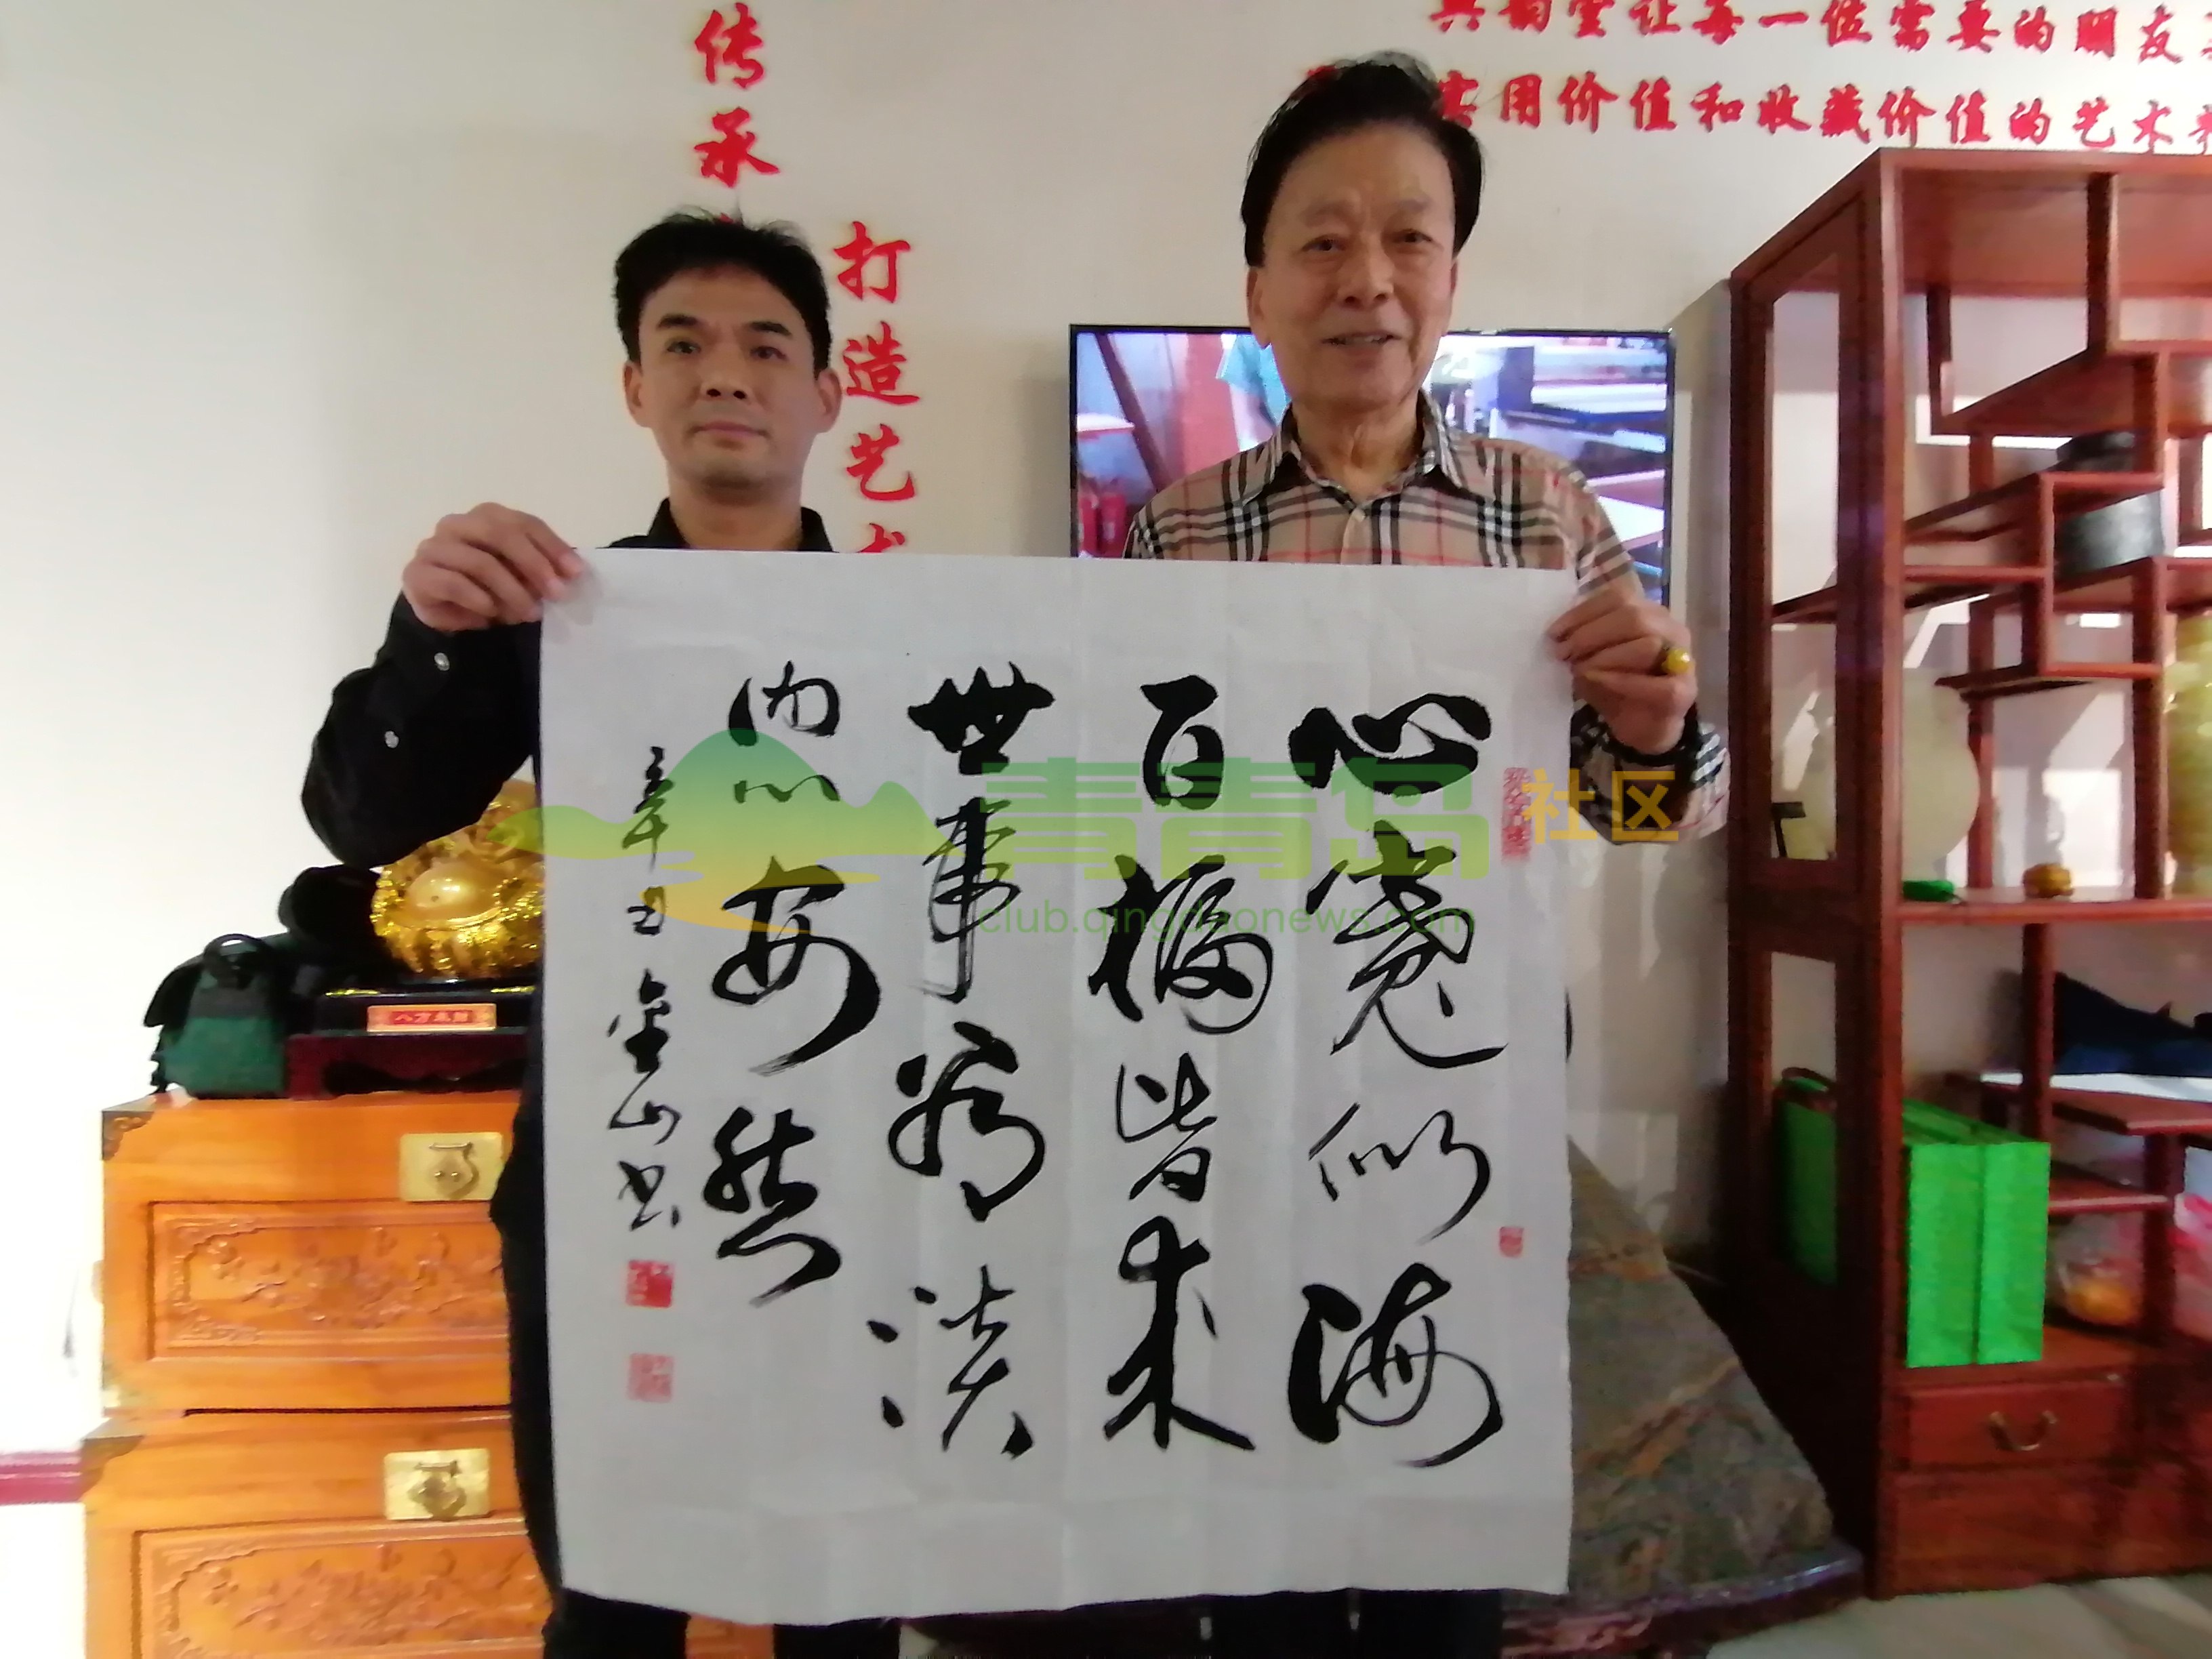 传承
打造艺
典韵堂让每一位需要的朋友
实用价值和收藏价值的艺术
心宽似海
百福皆来
世事看淡
内心安然
辛丑 金山书
八方来财
青青岛社区
club.qingdaonews.com